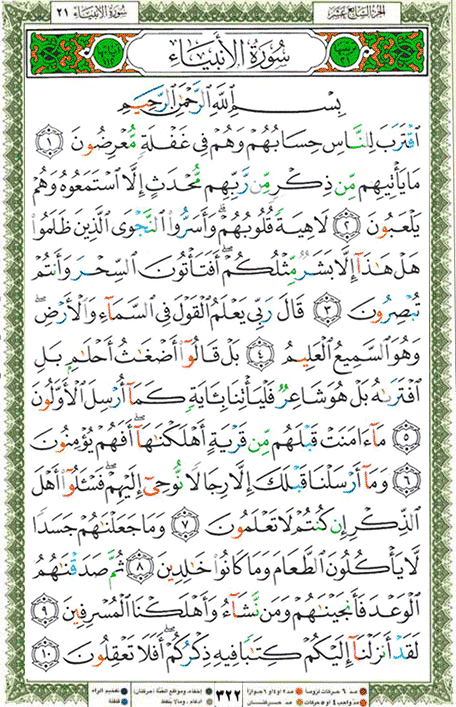 الجزء السابع عشر
سورة الأنبياء ٢١
سُورَةُ الأَنبِيَاءِ
بِسْمِ اللَّهِ الرَّحْمَٰنِ الرَّحِيمِ
ٱقۡتَرَبَ لِلنَّاسِ حِسَابُهُمۡ وَهُمۡ فِي غَفۡلَةٖ مُّعۡرِضُونَ ١
مَا يَأۡتِيهِم مِّن ذِكۡرٖ مِّن رَّبِّهِم مُّحۡدَثٍ إِلَّا ٱسۡتَمَعُوهُ وَهُمۡ
يَلۡعَبُونَ ٢ لَاهِيَةٗ قُلُوبُهُمۡۗ وَأَسَرُّواْ ٱلنَّجۡوَى ٱلَّذِينَ ظَلَمُواْ
هَلۡ هَٰذَآ إِلَّا بَشَرٞ مِّثۡلُكُمۡۖ أَفَتَأۡتُونَ ٱلسِّحۡرَ وَأَنتُمۡ
تُبۡصِرُونَ ٣ قَالَ رَبِّي يَعۡلَمُ ٱلۡقَوۡلَ فِي ٱلسَّمَآءِ وَٱلۡأَرۡضِۖ
وَهُوَ ٱلسَّمِيعُ ٱلۡعَلِيمُ ٤ بَلۡ قَالُوٓاْ أَضۡغَٰثُ أَحۡلَٰمِۭ بَلِ
ٱفۡتَرَىٰهُ بَلۡ هُوَ شَاعِرٞ فَلۡيَأۡتِنَا بِـَٔايَةٖ كَمَآ أُرۡسِلَ ٱلۡأَوَّلُونَ
٥ مَآ ءَامَنَتۡ قَبۡلَهُم مِّن قَرۡيَةٍ أَهۡلَكۡنَٰهَآۖ أَفَهُمۡ يُؤۡمِنُونَ
٦ وَمَآ أَرۡسَلۡنَا قَبۡلَكَ إِلَّا رِجَالٗا نُّوحِيٓ إِلَيۡهِمۡۖ فَسۡـَٔلُوٓاْ أَهۡلَ
ٱلذِّكۡرِ إِن كُنتُمۡ لَا تَعۡلَمُونَ ٧ وَمَا جَعَلۡنَٰهُمۡ جَسَدٗا
لَّا يَأۡكُلُونَ ٱلطَّعَامَ وَمَا كَانُواْ خَٰلِدِينَ ٨ ثُمَّ صَدَقۡنَٰهُمُ
ٱلۡوَعۡدَ فَأَنجَيۡنَٰهُمۡ وَمَن نَّشَآءُ وَأَهۡلَكۡنَا ٱلۡمُسۡرِفِينَ ٩
لَقَدۡ أَنزَلۡنَآ إِلَيۡكُمۡ كِتَٰبٗا فِيهِ ذِكۡرُكُمۡۚ أَفَلَا تَعۡقِلُونَ ١٠
٣٢٢